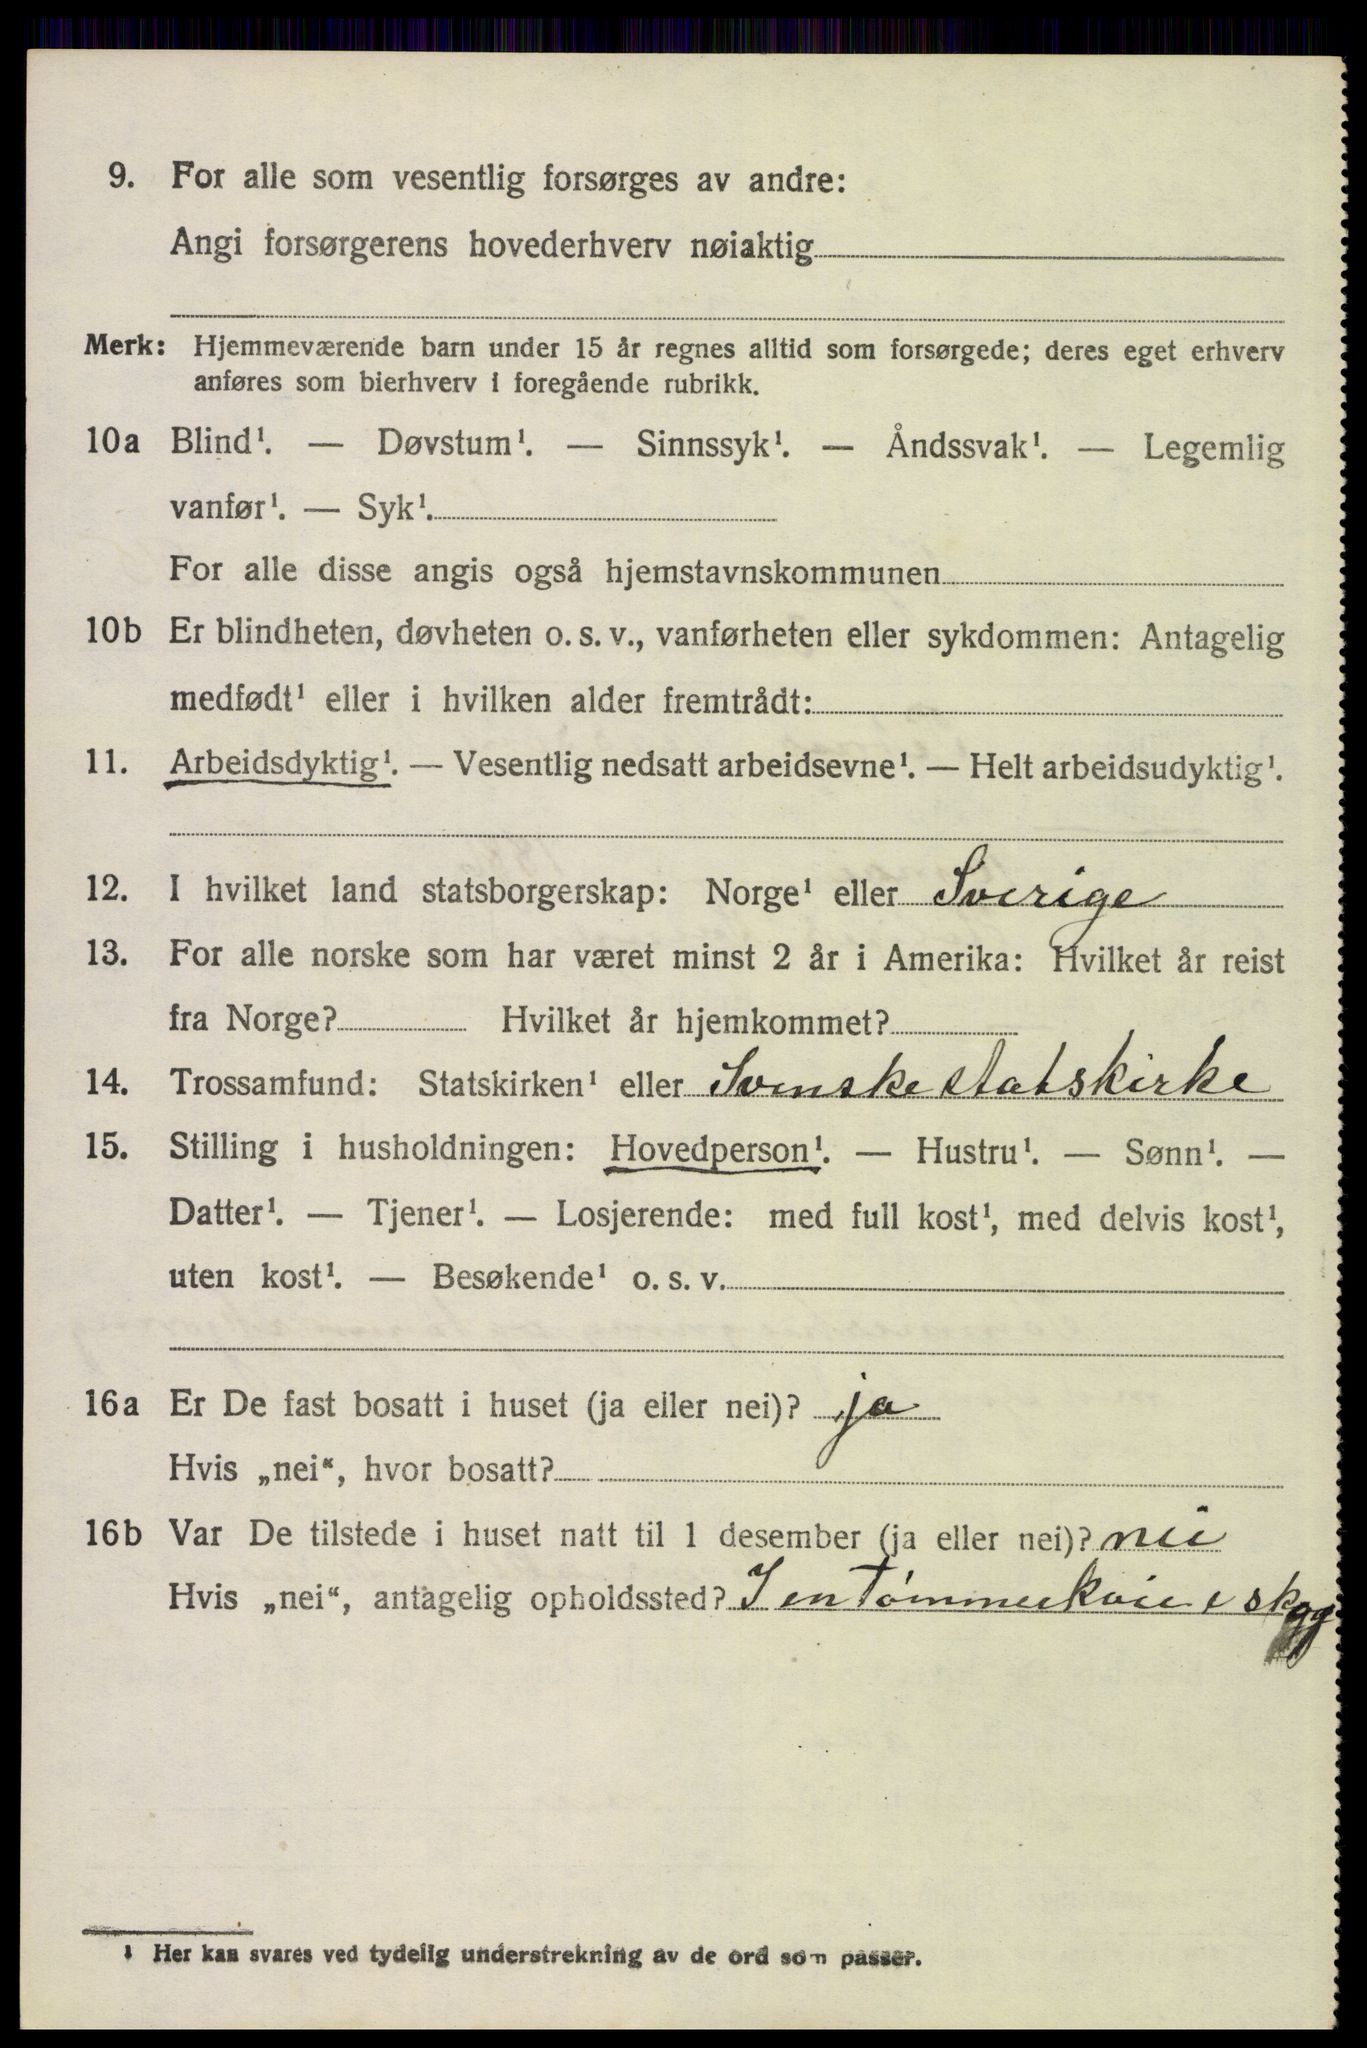 9. For alle som vesentlig forsørges av andre:
Angi forsørgerens hovederhverv nøiaktig
Merk: Hjemmeværende barn under 15 år regnes alltid som forsørgede; deres eget erhverv
anføres som bierhverv i foregående rubrikk.
10a Blind¹. — Døvstum¹. — Sinnssyk¹. — Åndssvak¹. — Legemlig
vanfør¹. — Syk¹.
For alle disse angis også hjemstavnskommunen
10b Er blindheten, døvheten o. s. v., vanførheten eller sykdommen: Antagelig
medfødt¹ eller i hvilken alder fremtrådt:
11. Arbeidsdyktig¹. — Vesentlig nedsatt arbeidsevne¹. — Helt arbeidsudyktig¹.
12. I hvilket land statsborgerskap: Norge¹ eller Sverige
13. For alle norske som har været minst 2 år i Amerika: Hvilket år reist
fra Norge? Hvilket år hjemkommet?
14. Trossamfund: Statskirken¹ eller Svenske statskirke
15. Stilling i husholdningen: Hovedperson¹. — Hustru¹. — Sønn¹. —
Datter¹. — Tjener¹. — Losjerende: med full kost¹, med delvis kost¹,
uten kost¹. — Besøkende¹ o. s. v.
16a Er De fast bosatt i huset (ja eller nei)? ja
Hvis „nei“, hvor bosatt?
16b Var De tilstede i huset natt til 1 desember (ja eller nei)? nei
Hvis „nei“, antagelig opholdssted? I en Tømmerkoie i skog
1 Her kan svares ved tydelig understrekning av de ord som passer.